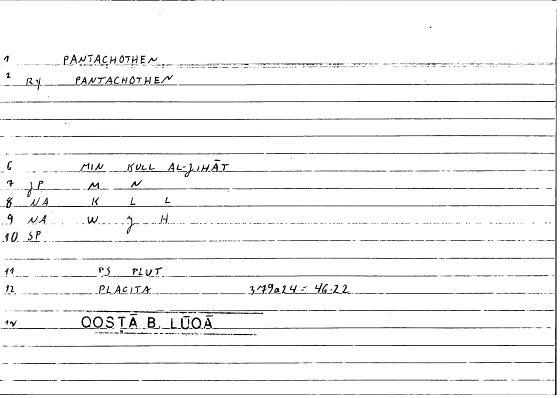 1 PANTACHOTHEN
2 Ry PANTACHOTHEN
6 MIN KULL AL-JIHĀT
7 JP M N
8 NA K L L
9 NA W J H
10 SP
11 PS PLUT
12 PLACITA 379a24 = 46.22
14 QOSṬĀ B. LŪQĀ